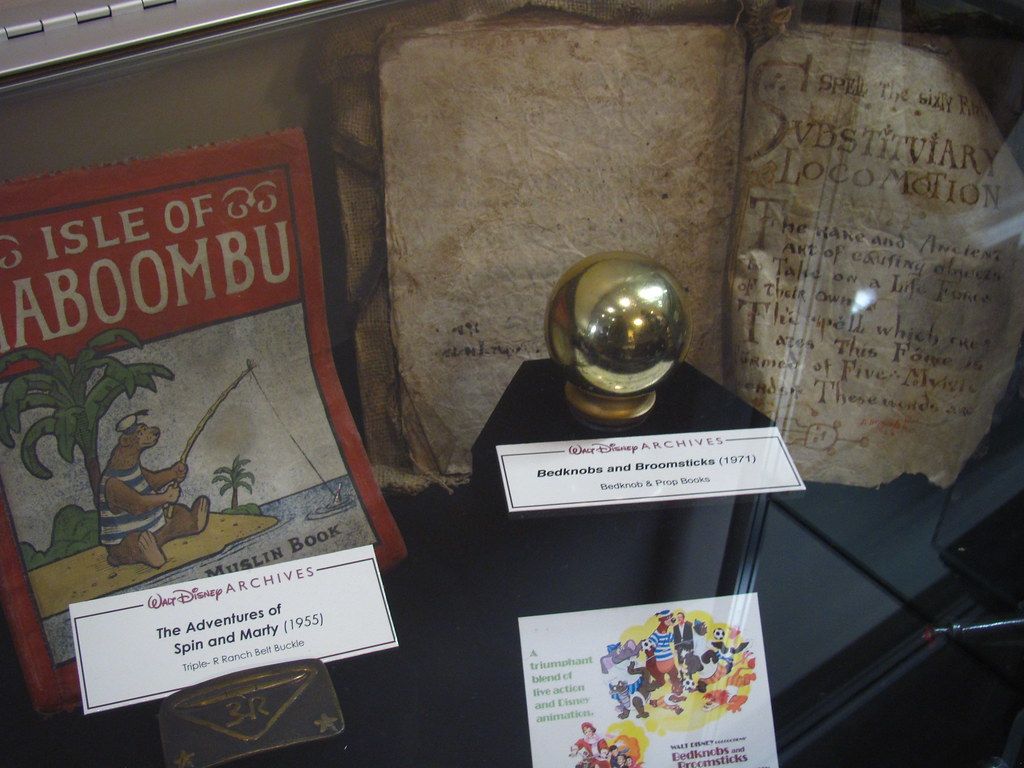 ISLE OF
ABOOMBU
MUSLIN BOOK
WALT DISNEY ARCHIVES
The Adventures of
Spin and Marty (1955)
Triple-R Ranch Belt Buckle
3R
SPELL The SIXTY
SVBSTITVIARY
LOCOMOTION
The RARE and ANCIENT
ART of CAUSING OBJECTS
To TAKE on a Life Force
of their own
The spell which
This Force is
of Five Mystic
These words are
WALT DISNEY ARCHIVES
Bedknobs and Broomsticks (1971)
Bedknob & Prop Books
A
triumphant
blend of
live action
and Disney
animation.
WALT DISNEY
Bedknobs and
Broomsticks